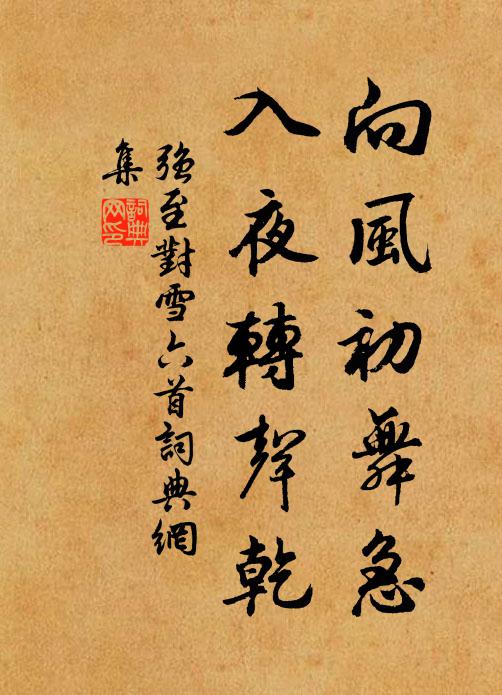 向風初舞急
入夜轉聲乾
強至對雪六首詞典網
集
詞典
网印